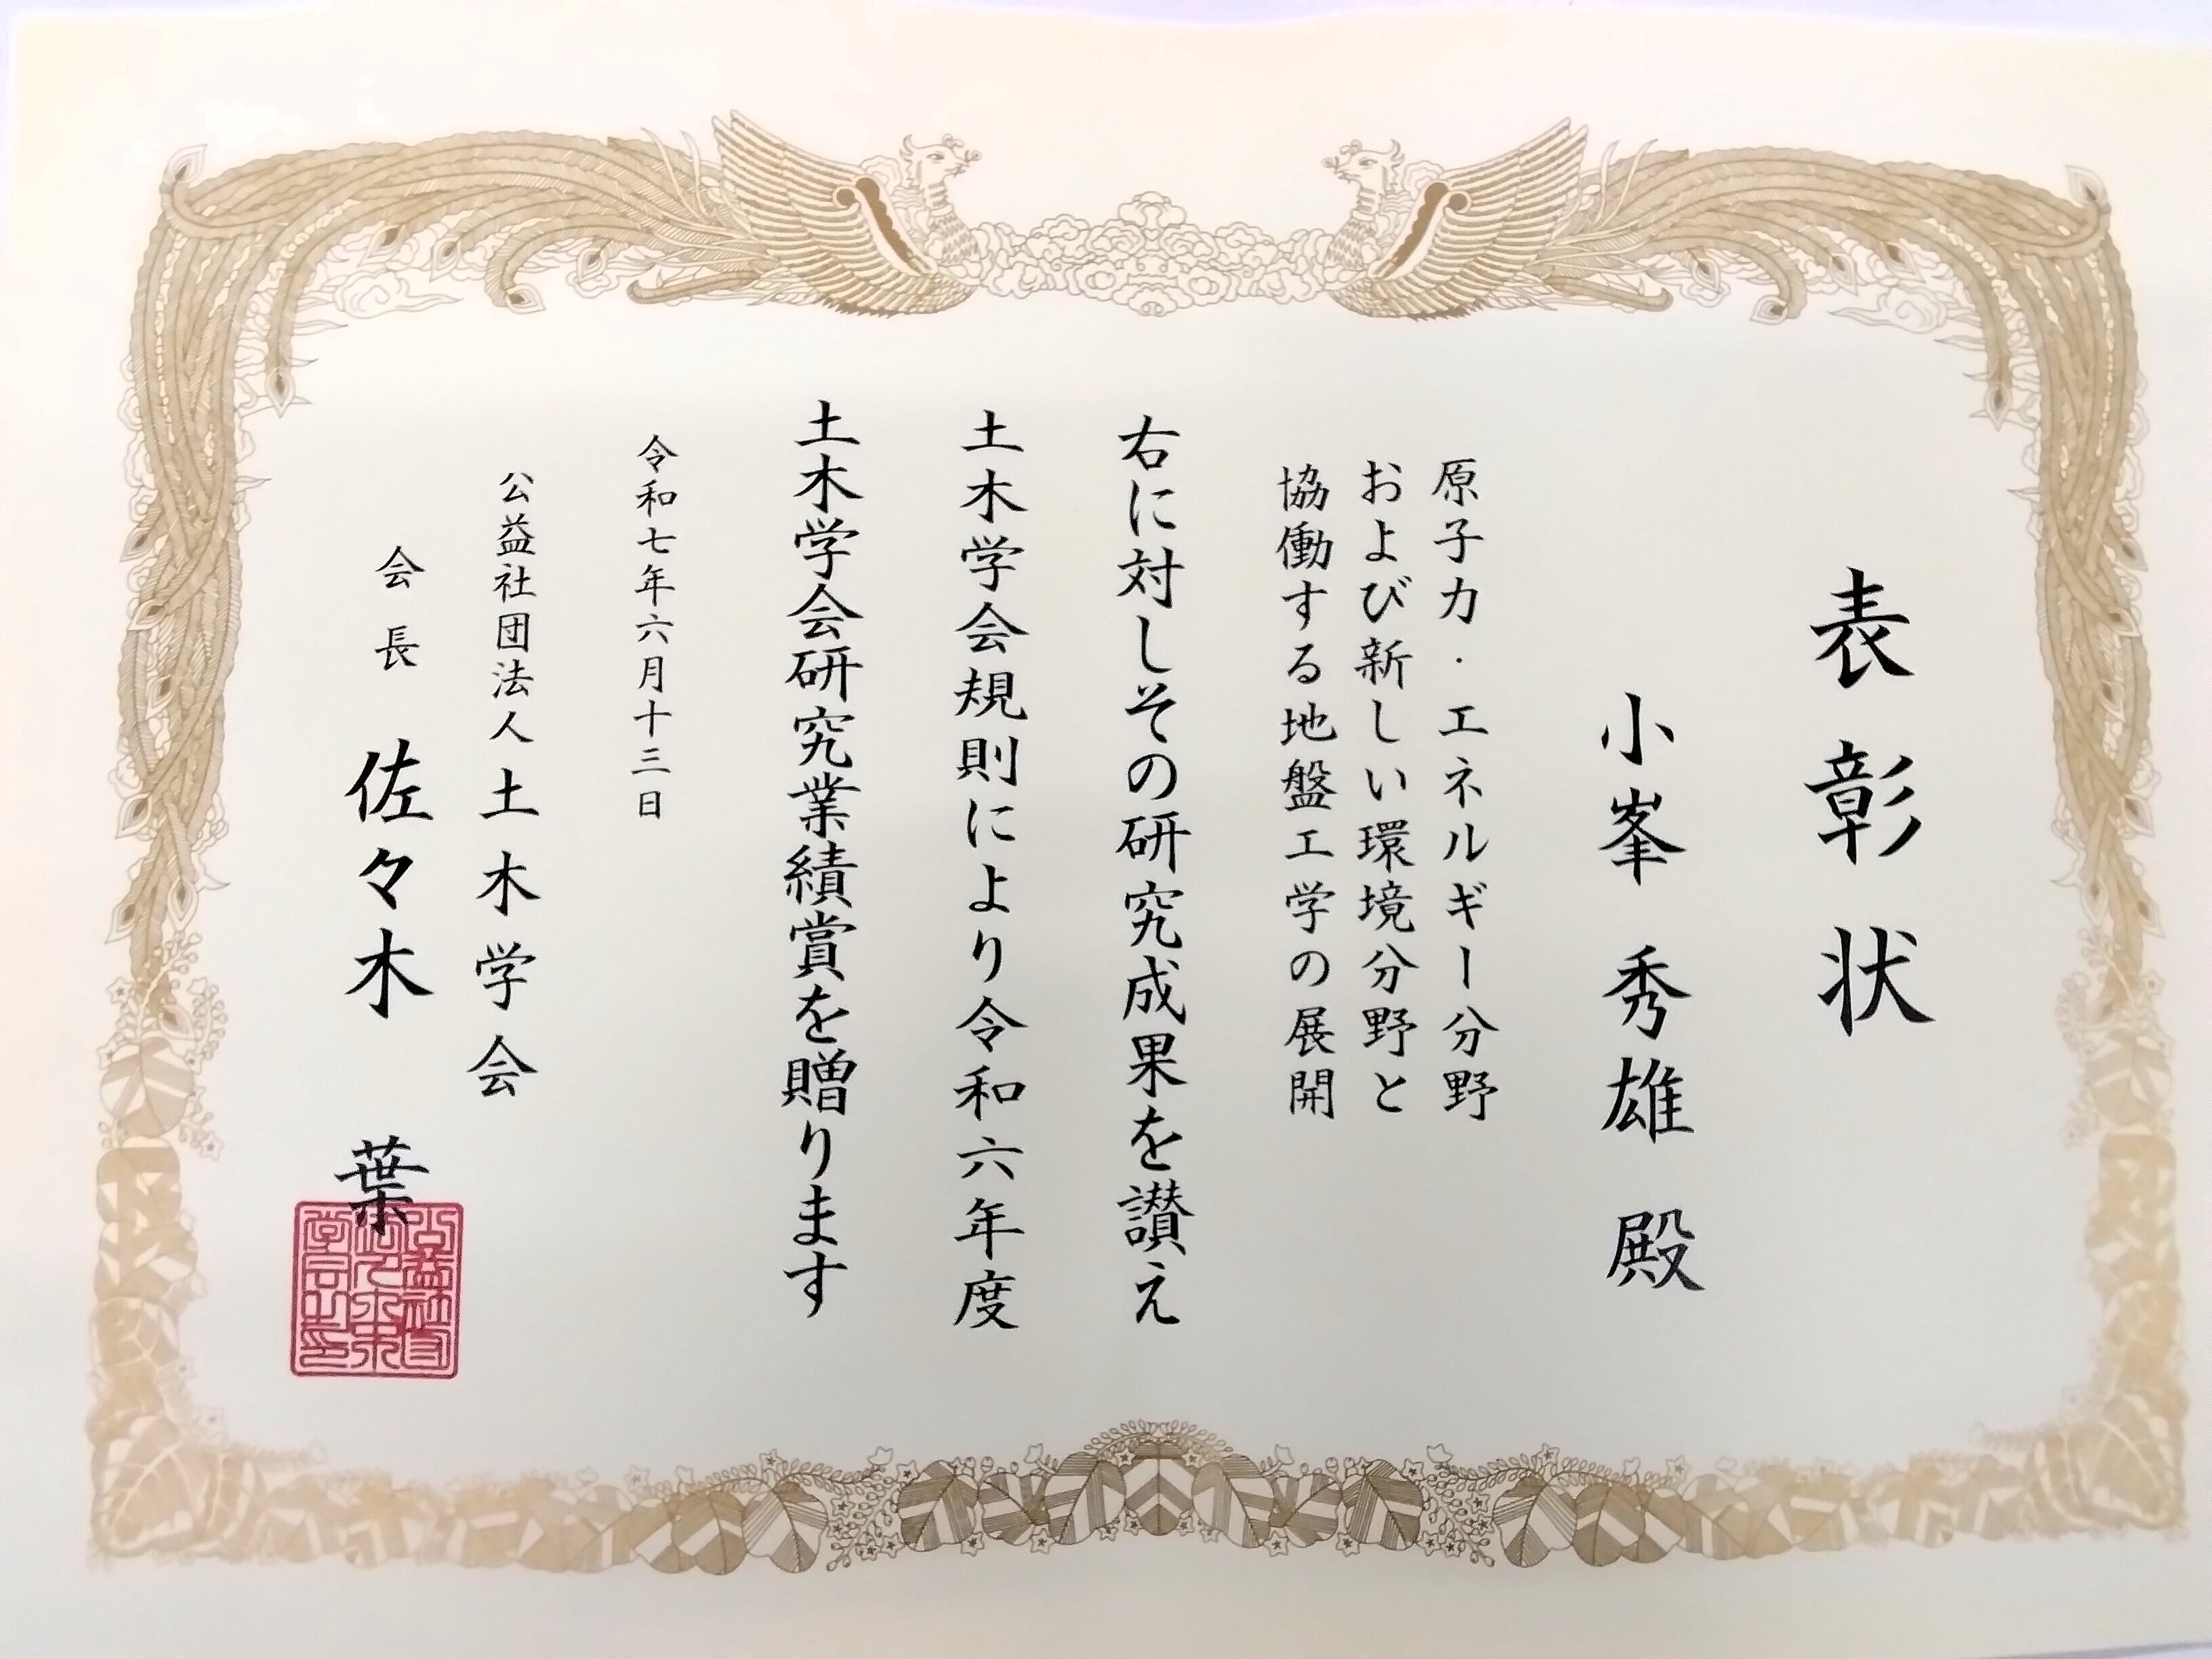 表彰状
小峯 秀雄 殿
原子力・エネルギー分野
および新しい環境分野と
協働する地盤工学の展開
右に対しその研究成果を讃え
土木学会規則により令和六年度
土木学会研究業績賞を贈ります
令和七年六月十三日
公益社団法人 土木学会
会長 佐々木 葉